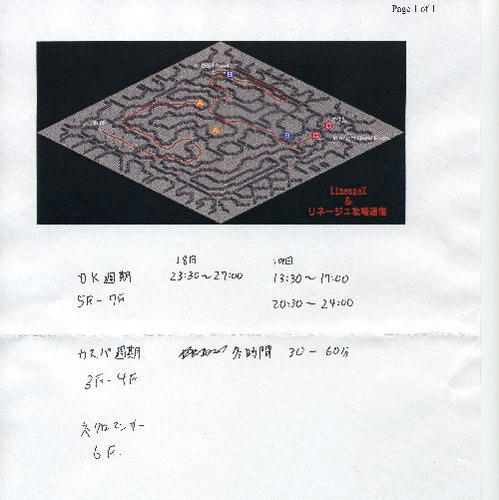 Page 1 of 1
A
B
A
B
C
C
LineageX
&
リネージュ攻略通信
18日 19日
DK 週期 23:30〜27:00 13:30〜17:00
5F-7F 20:30〜24:00
カスパ 週期 時間 30〜60分
3F-4F
ネクロマンサー
6F.